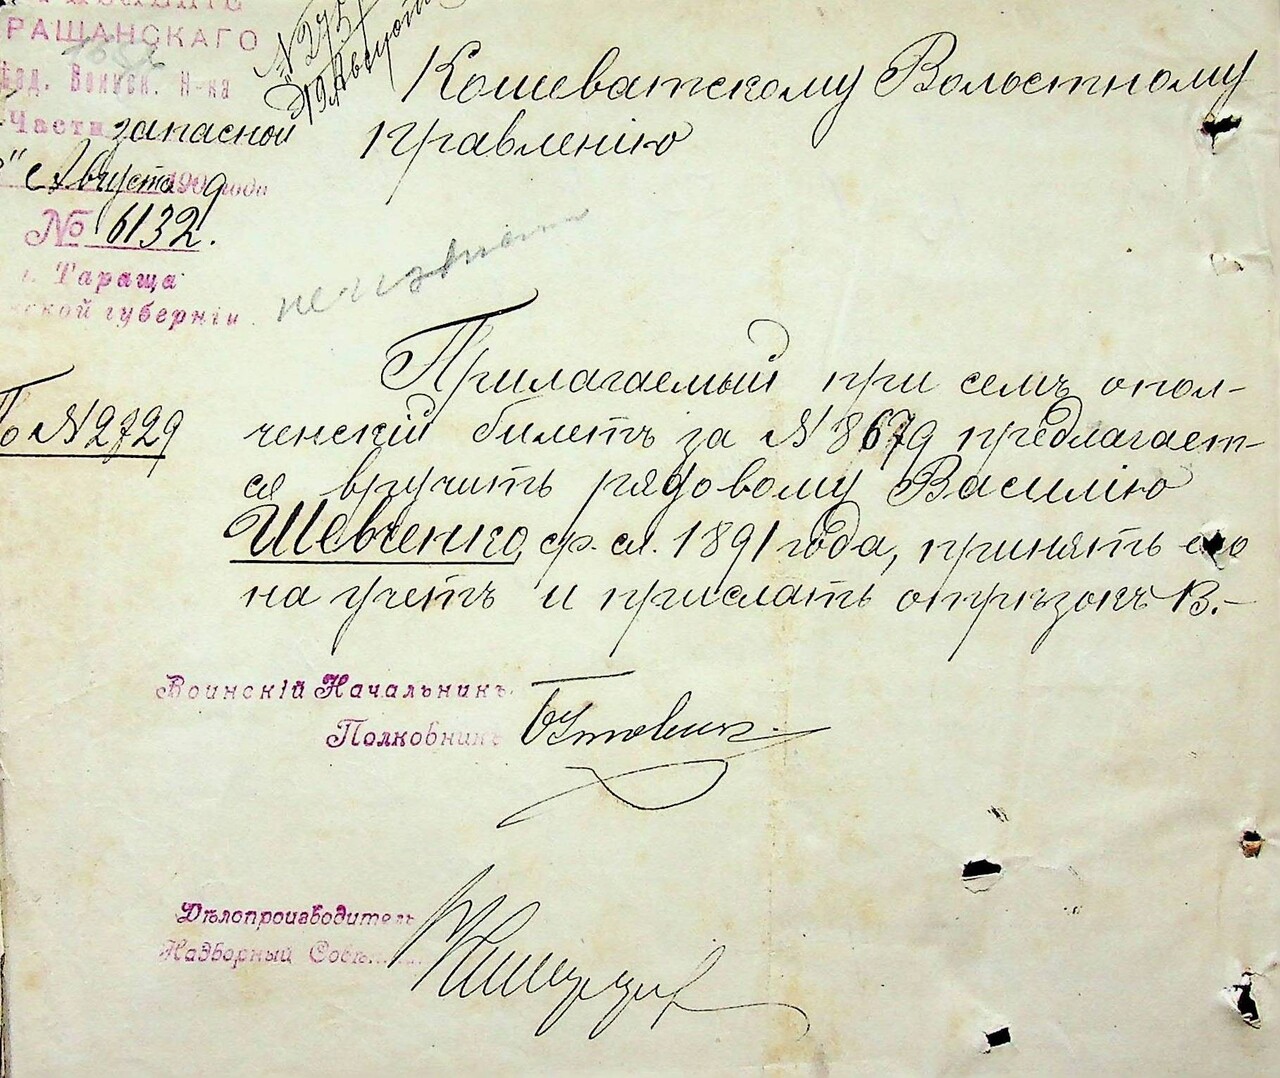 РАЩАНСКАГО
Воинск. Н-ка
Части запасной
Августа 1909 года
№ 6132.
г. Тараща
ской губерніи
№ 2757
19 Августа
Кошеватскому Волостному
Правленію
неизвестно
По № 2729
Прилагаемый при семъ опол-
ченскій билетъ за № 8679 предлагает-
ся вручить рядовому Василію
Шевченко, ср. сл. 1891 года, принять его
на учетъ и прислать отрѣзокъ В.-
Воинскій Начальникъ
Полковникъ
Дѣлопроизводитель
Надворный Совѣ